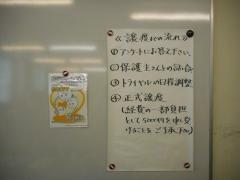 ≪譲渡までの流れ≫
①アンケートにお答え下さい。
②保護主さんとの話合
③トライヤルの日程調整
④正式譲渡
(経費の一部負担
として5000円を申し受
けることをご了承下さい)